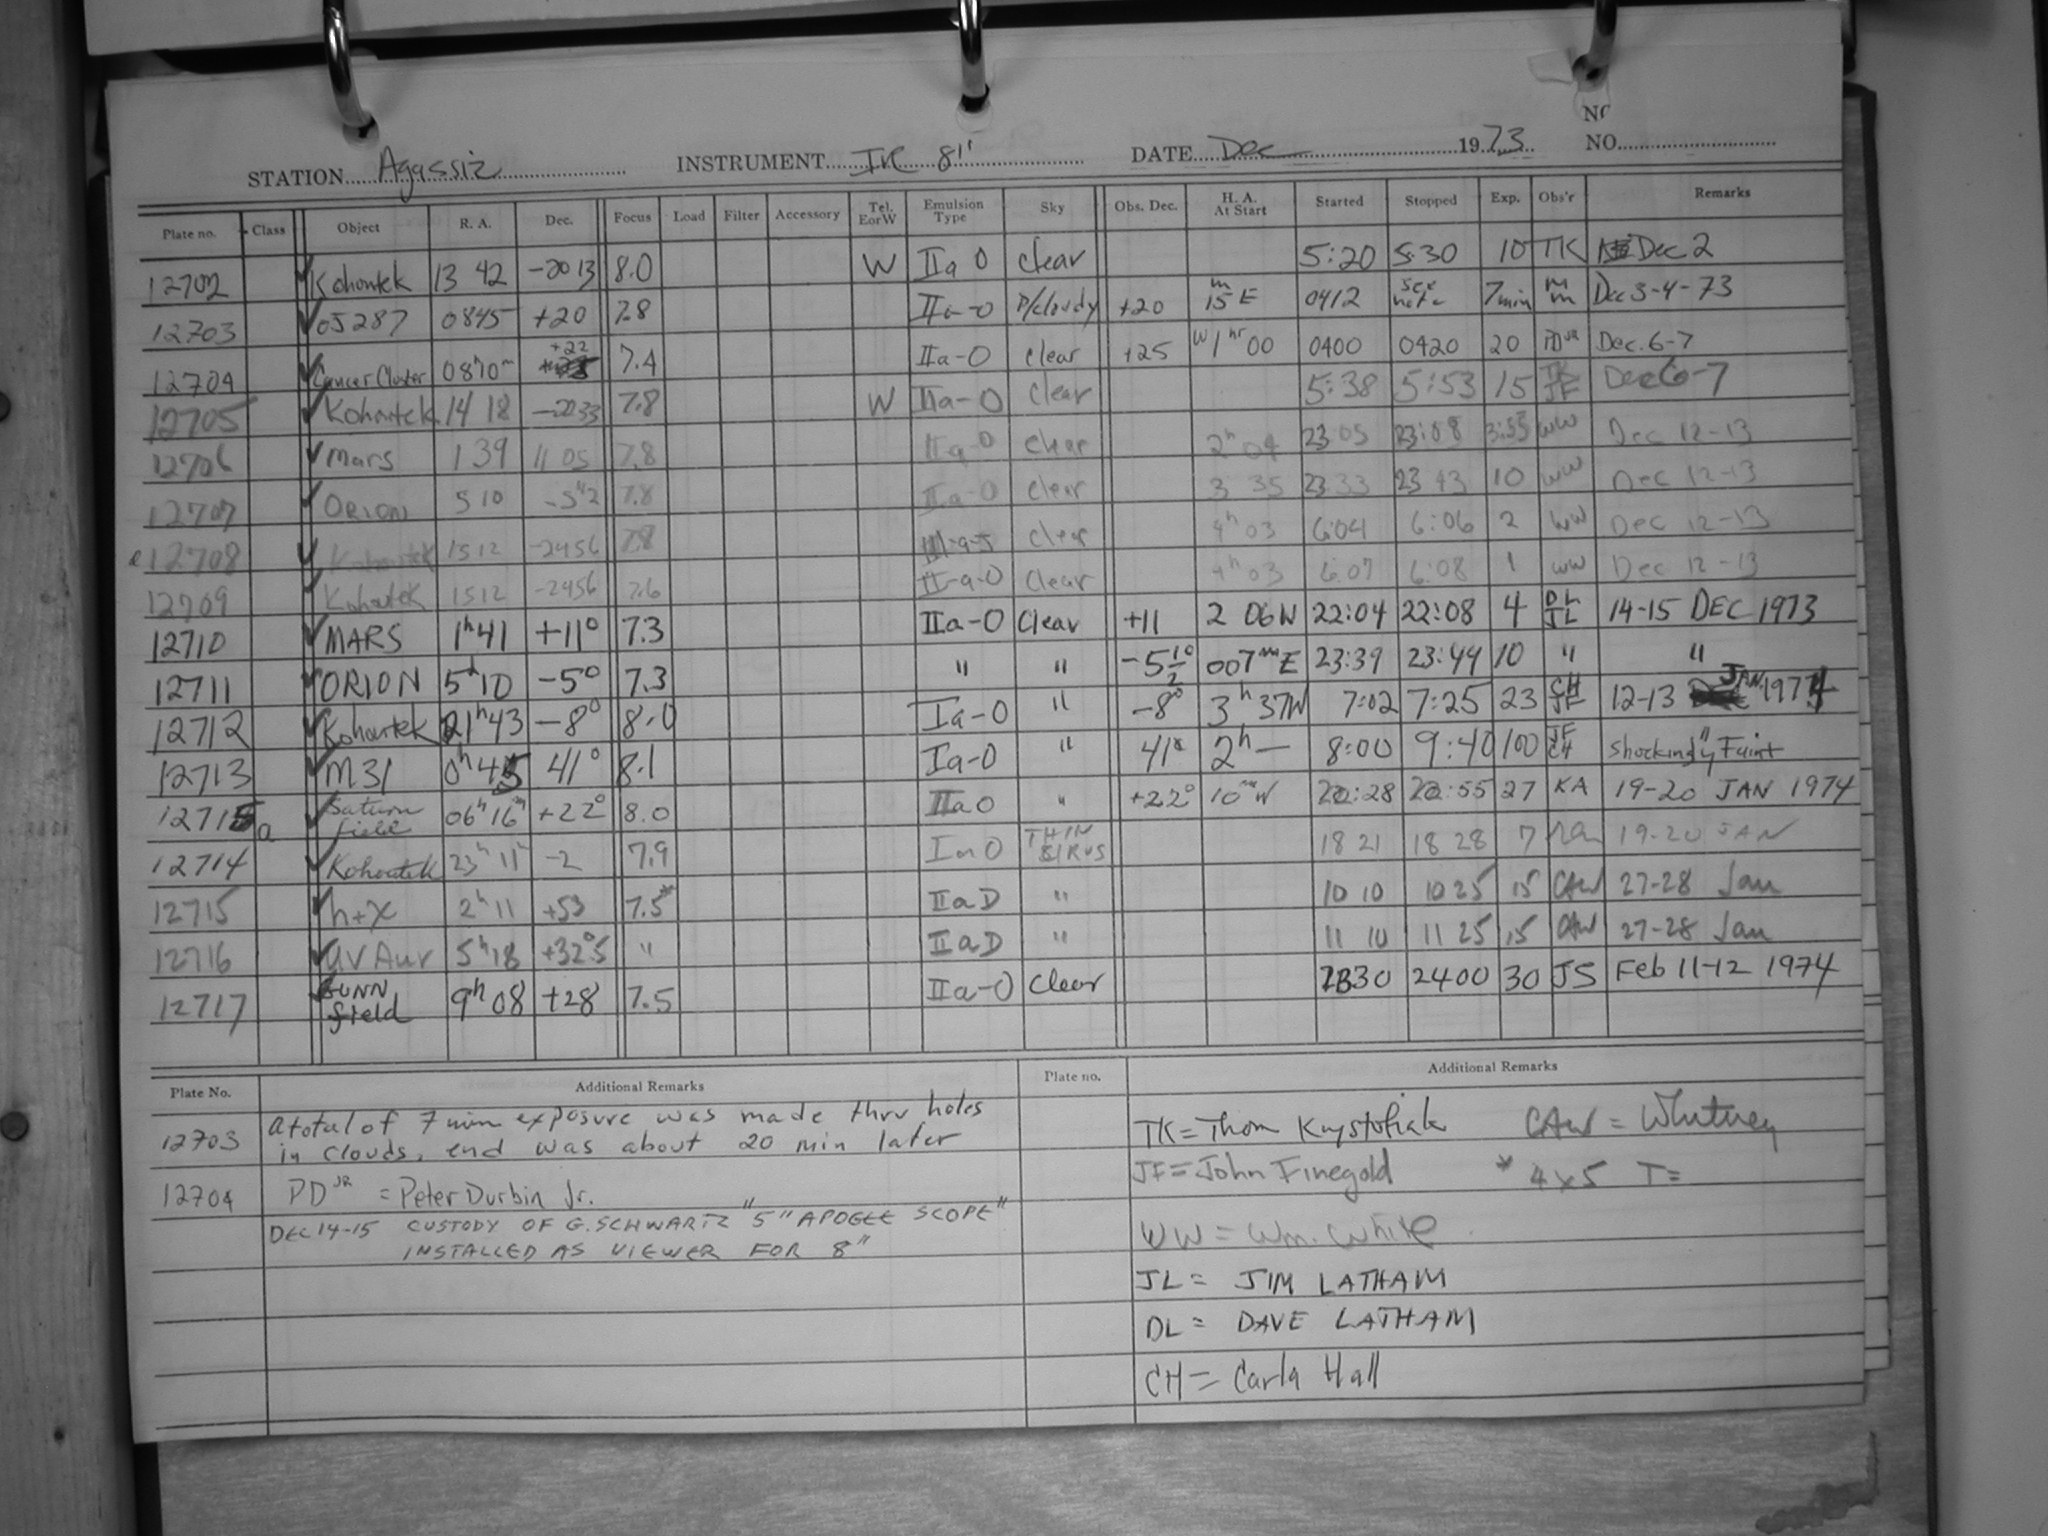 NO
STATION Agassiz INSTRUMENT IR 8" DATE Dec 1973 NO.
Plate no. Class Object R. A. Dec. Focus Load Filter Accessory Tel. EorW Emulsion Type Sky Obs. Dec. H. A. At Start Started Stopped Exp. Obs'r Remarks
12702 Kohoutek 13 42 -2013 8.0 W IIa O clear 5:20 5:30 10 TK Dec 2
12703 OJ287 0845 +20 7.8 IIa-O P/cloudy +20 15m E 0412 see note 7min mm Dec 3-4-73
12704 Cancer Cluster 08h10m +22 7.4 IIa-O clear +25 W1hr00 0400 0420 20 PDJR Dec. 6-7
12705 Kohoutek 14 18 -2033 7.8 W IIa-O Clear 5:38 5:53 15 JF Dec 6-7
12706 Mars 1 39 11 05 7.8 IIa-O clear 2h 04 23 05 23:08 3:55 WW Dec 12-13
12707 ORION 5 10 -5 42 7.8 IIa-O clear 3 35 23 33 23 43 10 WW Dec 12-13
12708 Kohoutek 1512 -2456 7.8 clear 4h 03 6:04 6:06 2 WW Dec 12-13
12709 Kohoutek 1512 -2456 7.6 II-a-O Clear 4h 03 6:07 6:08 1 WW Dec 12-13
12710 MARS 1h41 +11° 7.3 IIa-O Clear +11 2 06W 22:04 22:08 4 DL JL 14-15 DEC 1973
12711 ORION 5h10 -5° 7.3 " " -5 1/2° 007mE 23:39 23:44 10 " "
12712 Kohoutek 21h43 -8° 8.0 Ia-O " -8° 3h37W 7:02 7:25 23 CH JF 12-13 JAN 1974
12713 M31 0h45 41° 8.1 Ia-O " 41° 2h— 8:00 9:40 100 JF CH " Shockingly Faint
12715a Saturn field 06h16m +22° 8.0 IIaO " +22° 10mW 22:28 22:55 27 KA 19-20 JAN 1974
12714 Kohoutek 23h11m -2 7.9 IaO THIN CIRRUS 18 21 18 28 7 19-20 JAN
12715 h+χ 2h11 +53 7.5* IIaD " 10 10 10 25 15 CAW 27-28 Jan
12716 UV Aur 5h18 +32°5 " IIaD " 11 10 11 25 15 CAW 27-28 Jan
12717 GUNN field 9h08 +28 7.5 IIa-O Clear 2330 2400 30 JS Feb 11-12 1974
Plate No. Additional Remarks Plate no. Additional Remarks
12703 A total of 7 min exposure was made thru holes
in clouds, end was about 20 min later
12704 PDJR = Peter Durbin Jr.
DEC 14-15 CUSTODY OF G. SCHWARTZ "5" APOGEE SCOPE"
INSTALLED AS VIEWER FOR 8"
TK = Thom CAW = Whitney
JF = John Finegold * 4x5 T=
WW = Wm. White
JL = JIM LATHAM
DL = DAVE LATHAM
CH = Carla Hall